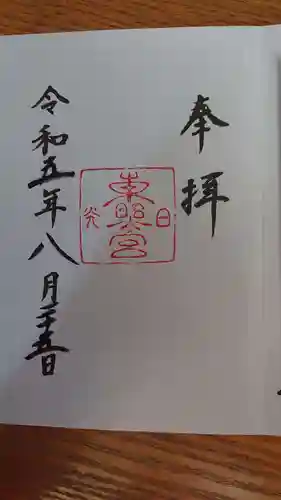 奉拝
日光
東照宮
令和五年八月二十五日